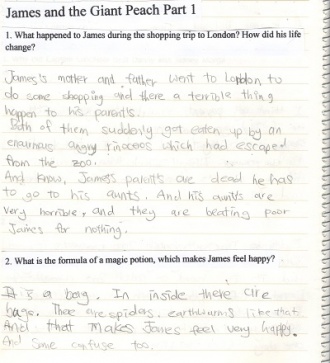 James and the Giant Peach Part 1
1. What happened to James during the shopping trip to London? How did his life
change?
James's mother and father went to London to
do some shopping and there a terrible thing
happen to his parents.
Both of them suddenly got eaten up by an
enaurmus angry rinoceos which had escaped
from the zoo.
And know, James's parents are dead he has
to go to his aunts. And his aunts are
very horrible, and they are beating poor
James for nothing.
2. What is the formula of a magic potion, which makes James feel happy?
It is a bag. In inside there are
bags. There are spiders, earthworms like that
And that makes James feel very happy.
And some confuse too.